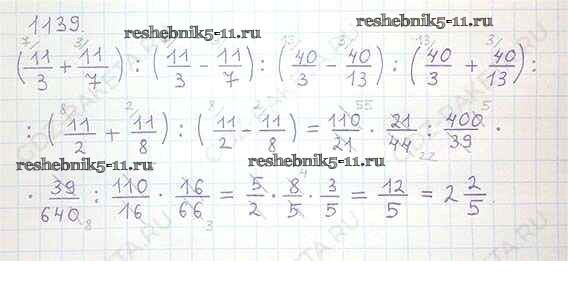 1139.
reshebnik5-11.ru
reshebnik5-11.ru
(11/3 + 11/7) : (11/3 - 11/7) : (40/3 - 40/13) : (40/3 + 40/13) :
: (11/2 + 11/8) : (11/2 - 11/8) = 110/21 · 21/44 : 400/39 ·
reshebnik5-11.ru
reshebnik5-11.ru
· 39/640 : 110/16 · 16/66 = 5/2 · 8/5 · 3/5 = 12/5 = 2 2/5.